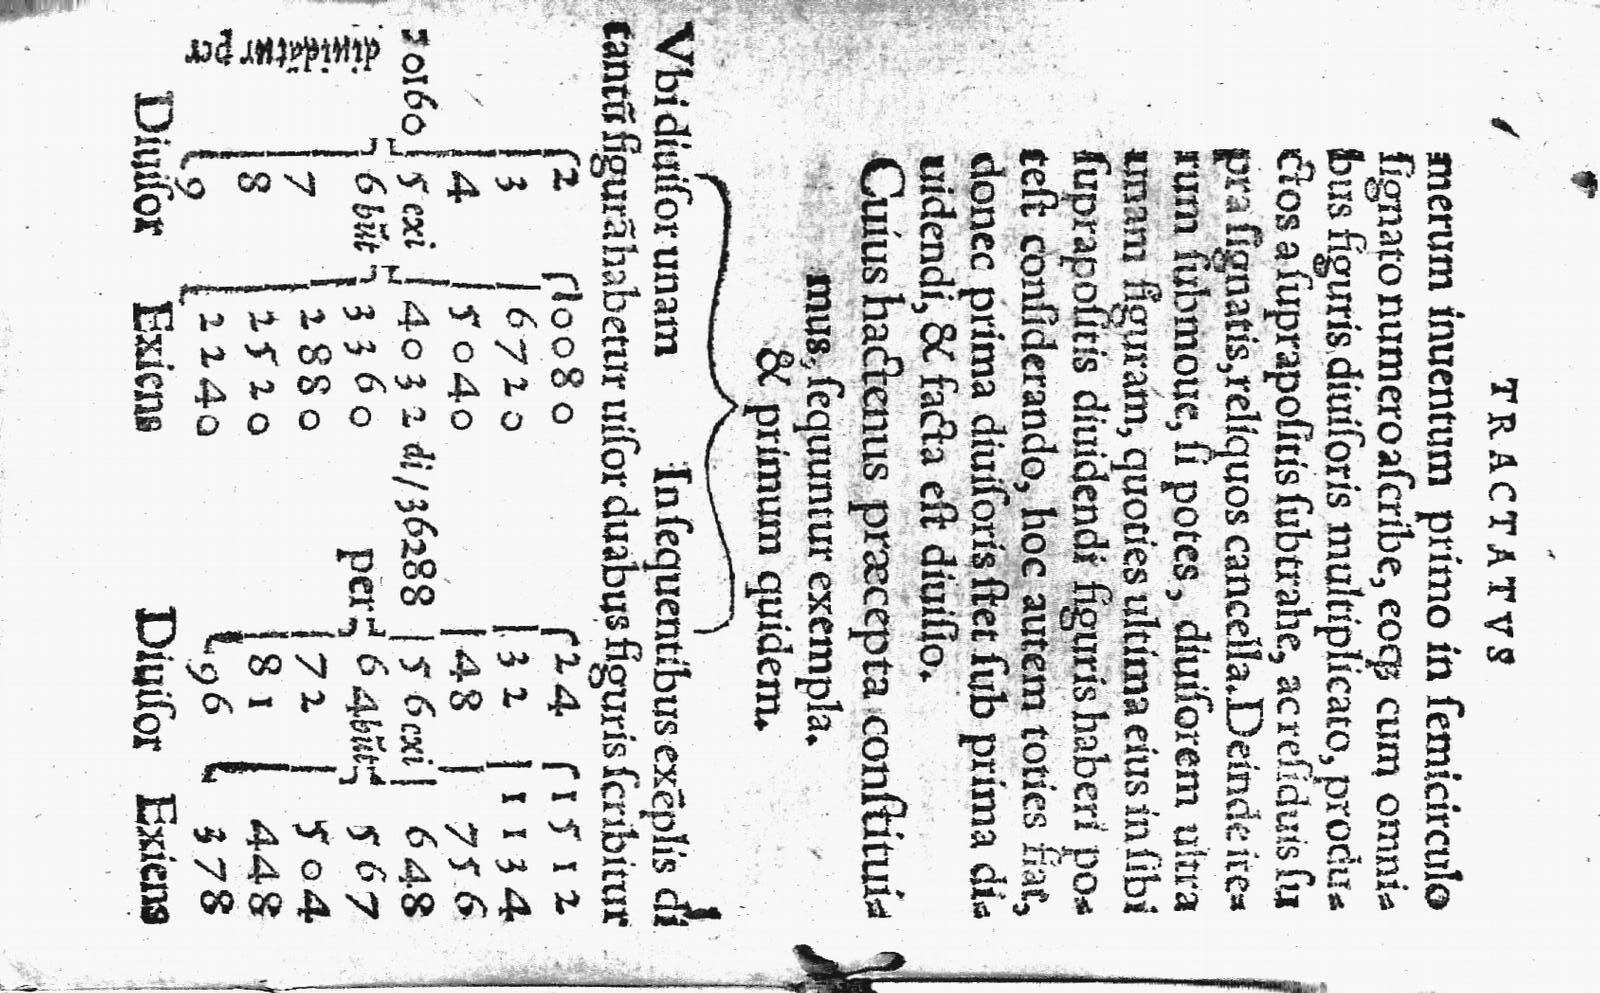 TRACTATVS
merum inuentum primo in ſemicirculo
ſignato numero aſcribe, eoq; cum omni=
bus figuris diuiſoris multiplicato, produ=
ctos a ſuprapoſitis ſubtrahe, ac reſiduis ſu
pra ſignatis, reliquos cancella. Deinde ite=
rum ſubmoue, ſi potes, diuiſorem ultra
umam figuram, quoties ultima eius in ſibi
ſuprapoſitis diuidendi figuris haberi po=
teſt conſiderando, hoc autem toties fiat,
donec prima diuiſoris ſtet ſub prima di=
uidendi, & facta eſt diuiſio.
Cuius hactenus præcepta conſtitui=
mus, ſequuntur exempla.
& primum quidem.
Vbi diuiſor unam In ſequentibus exēplis di
tantū figurā habetur uiſor duabus figuris ſcribitur
2 10080 24 1512
3 6720 32 1134
4 5040 48 756
20160 5 exi 4032 di/36288 56 exi 648
diuidātur per 6 būt 3360 per 64 būt 567
7 2880 72 504
8 2520 81 448
9 2240 96 378
Diuiſor Exiens Diuiſor Exiens